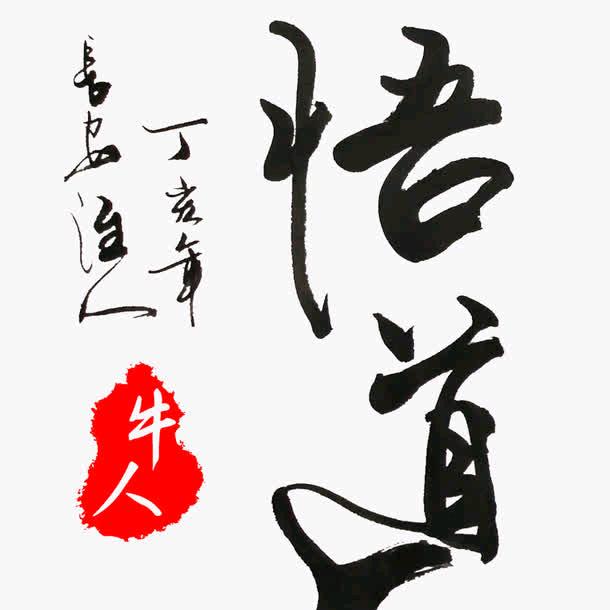 悟道
丁亥年
长安淮人
牛人